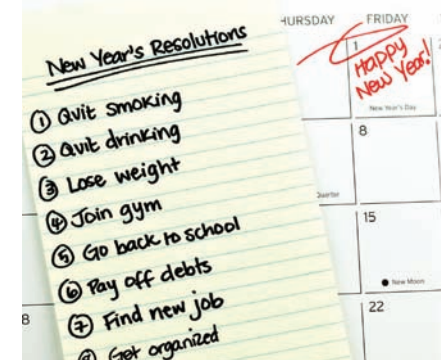 New Year's Resolutions
① Quit smoking
② Quit drinking
③ Lose weight
④ Join gym
⑤ Go back to school
⑥ Pay off debts
⑦ Find new job
⑧ Get organized
HURSDAY
FRIDAY
1
Happy
New Year!
New Year's Day
8
Quarter
15
New Moon
22
8